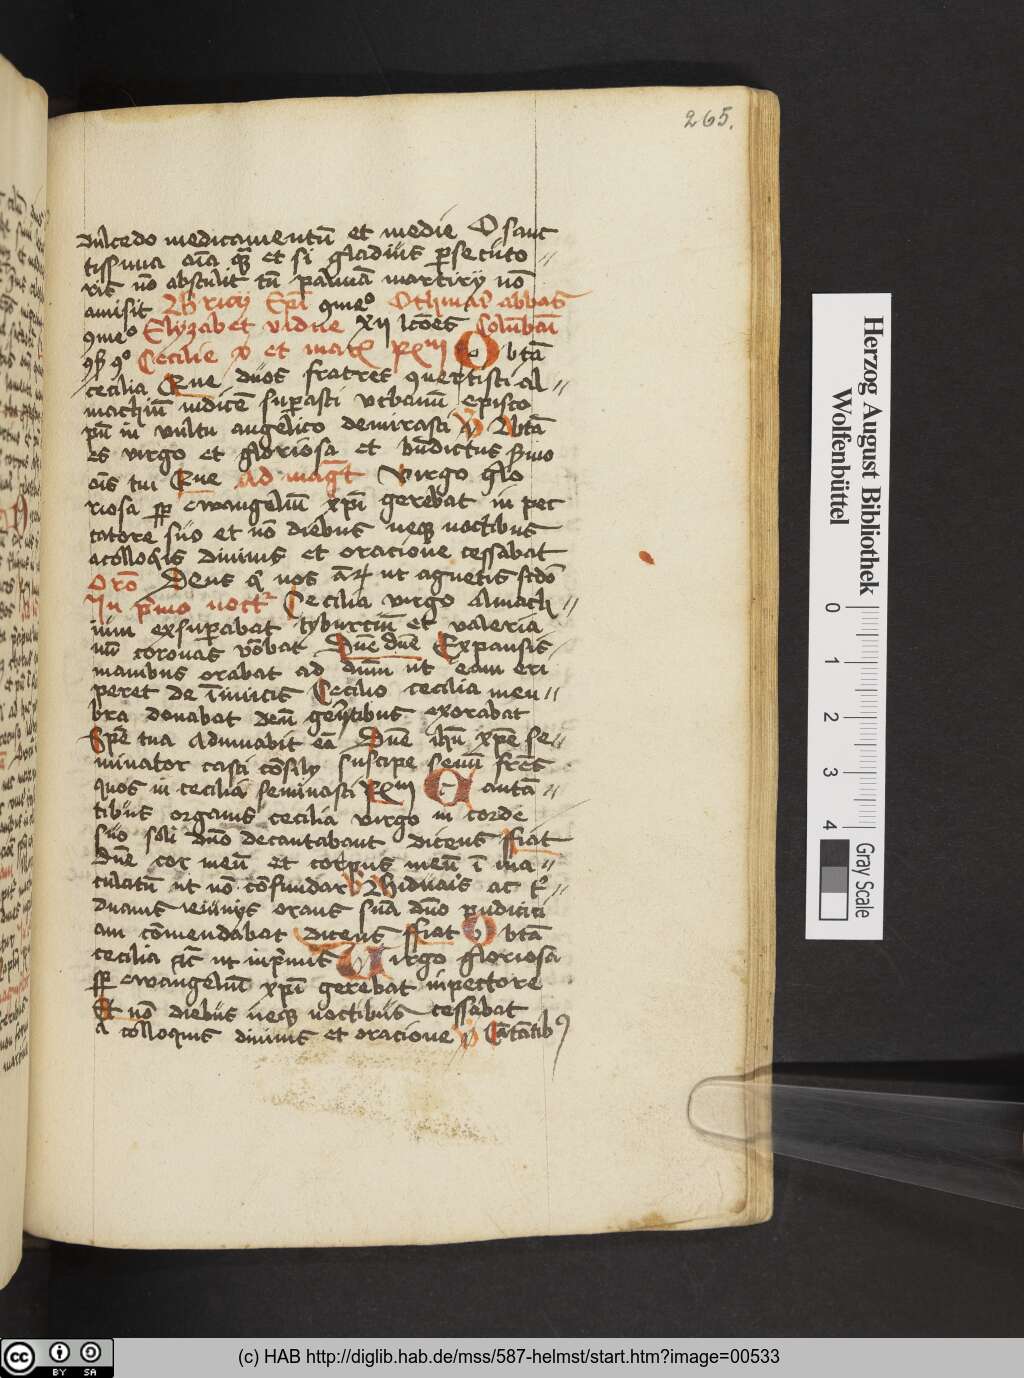 265.
dulcedo medicamentū et medie O sanc
tissima aīa quā et si gladius psecuto //
ris nō abstulit tn̄ palmā martirij nō
amisit Bricij Epī 9meº Othmari abbatꝭ
9meº Elyzabet vidue xij lcōes Colūbani
Cecilie v et marꝭ Rm O btā
cecilia Que duos fratres 9uertisti al //
machiū iudicē supasti vrbanū episco
pū in vultu angelico demirasti v̄ Abtā
es virgo et gloriosa et bn̄dictus
oīs tui Que Ad magt Virgo glo
riosa sp ewangeliū xpī gerebat in pec
tore suo et nō diebus neqꝫ noctibus
acolloqijs diuinis et oracione cessabat
Orō Deus q nos ut agnetis scdō
In pmo noctꝰ Cecilia virgo almach //
ium exsupabat tyburciū et valeria
nū coronas vōbat Dn̄e dn̄e Expansis
manibus orabat ad dn̄m ut eam eri
peret de īimicis Cecilio cecilia mem //
bra domabat deū gemitibus exorabat
Spē tua Adiuuabit eā Dn̄e ihū xpē se //
minator casti cōsilij suscipe semiū frēs
quos in cecilia seminasti Rm C antā //
tibus organis cecilia virgo in corde
suo soli dn̄o decantabant dicens ffiat
dn̄e cor meū et corpus meū ī ma //
culatū ut nō cōfundar v Biduaīs ac tº //
duanis ieiunijs orans suā dn̄o pudiciti
am cōmendabat dicens ffiat O btā
cecilia ut inpmis V irgo gloriosa
sp ewangeliū xpī gerebat inpectore
Et nō diebus neqꝫ noctibus cessabat
a colloquijs diuinis et oracione v̄ Cātātib9
Herzog August Bibliothek
Wolfenbüttel
0 1 2 3 4
Gray Scale
cc BY SA
(c) HAB http://diglib.hab.de/mss/587-helmst/start.htm?image=00533